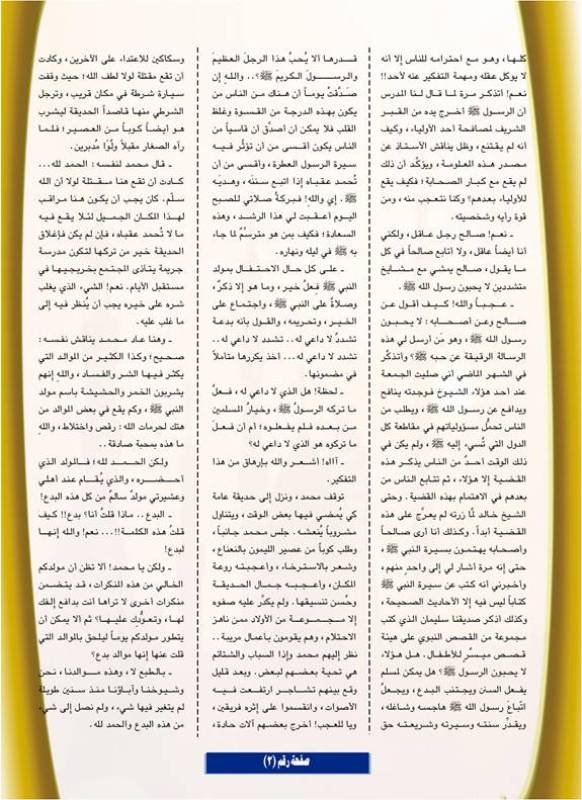 كلها، وهو مع احترامه للناس إلا أنه
لا يوكل عقله ومهمة التفكير عنه لأحد!!
نعم! أتذكر مرة لما قال لنا المدرس
أن الرسول ﷺ أخرج يده من القبر
الشريف لمصافحة أحد الأولياء، وكيف
أنه لم يقتنع، وظل يناقش الأستاذ عن
مصدر هذه المعلومة، ويؤكّد أن ذلك
لم يقع مع كبار الصحابة؛ فكيف يقع
للأولياء بعدهم؟ وكنا نتعجب منه، ومن
قوة رأيه وشخصيته.
ـ نعم! صالح رجل عاقل، ولكني
أنا أيضاً عاقل، ولا أتابع صالحاً في كل
ما يقول، صالح يمشي مع مشايخ
متشددين لا يحبون رسول الله ﷺ.
ـ عجباً والله! كيف أقول عن
صالح وعن أصحابه : لا يحبون
رسول الله ﷺ، وهو مَن أرسل لي هذه
الرسالة الرقيقة عن حبه ﷺ؟ وأتذكّر
في الشهر الماضي أني صليت الجمعة
عند أحد هؤلاء الشيوخ فوجدته ينافح
ويدافع عن رسول الله ﷺ، ويطلب من
الناس تحمُّل مسؤولياتهم في مقاطعة كل
الدول التي تُسيء إليه ﷺ، ولم يكن في
ذلك الوقت أحدٌ من الناس يذكر هذه
القضية إلا هؤلاء، ثم تتابع الناس من
بعدهم في الاهتمام بهذه القضية. وحتى
الشيخ خالد لمَّا زرته لم يعرِّج على هذه
القضية أبداً. وكذلك أنا أرى صالحاً
وأصحابه يهتمون بسيرة النبي ﷺ،
حتى إنه مرة أشار لي إلى واحدٍ منهم،
وأخبرني أنه كتب عن سيرة النبي ﷺ
كتاباً ليس فيه إلا الأحاديث الصحيحة،
وكذلك أذكر صديقنا سليمان الذي كتب
مجموعة من القصص النبوي على هيئة
قصص ميسَّرٍ للأطفال. هل هؤلاء،
لا يحبون الرسول ﷺ؟ هل يمكن لمسلم
يفعل السنن ويجتنب البدع، ويجعلُ
اتّباعَ رسول الله ﷺ هاجسه وشاغله،
ويقدِّر سنته وسيرته وشريعته حق
قدرها ألا يُحبَّ هذا الرجلَ العظيمَ
والرسولَ الكريمَ ﷺ؟.. والله! إن
صدَّقتُ يوماً أن هناك من الناس من
يكون بهذه الدرجة من القسوة وغلظ
القلب فلا يمكن أن أصدِّق أن قاسياً من
الناس أقسى من أن تؤثِّر فيه
سيرة الرسول العطرة، وأقسى من أن
تُحمد عقباه إذا اتبع سننَه، وهديَه
. إي والله! فبركةُ صلاتي للصبح
اليوم أعقبت لي هذا الرشد، وهذه
السعادة؛ فكيف بمن هو مترسِّمٌ لما جاء
به ﷺ في ليله ونهاره.
ـ على كل حال الاحتفال بمولد
النبي ﷺ فعلُ خير، وما هو إلا ذكرٌ،
وصلاةٌ على النبي ﷺ، واجتماع على
الخير، وتحريمه، والقول بأنه بدعة
تشددٌ لا داعي له.. تشدد لا داعي له..
تشدد لا داعي له... أخذ يكررها متأملاً
في مضمونها.
ـ لحظة! هل الذي لا داعي له، فعلُ
ما تركه الرسولُ ﷺ، وخيارُ المسلمين
من بعده فلم يفعلوه؛ أم أن فعلَ
ما تركوه هو الذي لا داعي له؟
ـ آااه! أشعر والله بإرهاق من هذا
التفكير.
توقف محمد، ونزل إلى حديقة عامة
كي يُمضي فيها بعض الوقت، ويتناول
مشروباً يُنعشه. جلس محمد جانباً،
وطلب كوباً من عصير الليمون بالنعناع،
وشعر بالاسترخاء، وأعجبته روعة
المكان، وأعجبه جمال الحديقة
وحُسن تنسيقها. ولم يكدِّر عليه صفوه
إلا مجموعة من الأولاد ممن ناهز
الاحتلام، وهم يقومون بأعمال مريبة..
نظر إليهم محمد وإذا السباب والشتائم
هي تحية بعضهم لبعض. وبعد قليل
وقع بينهم تشاجر ارتفعت فيه
الأصوات، وانقسموا على إثره فريقين،
ويا للعجب! أخرج بعضهم آلات حادة،
وسكاكين للاعتداء على الآخرين، وكادت
أن تقع مقتلة لولا لطف الله؛ حيث وقفت
سيارة شرطة في مكان قريب، وترجل
الشرطي منها قاصداً الحديقة ليشرب
هو أيضاً كوباً من العصير؛ فلما
رآه الصغار مقبلاً ولَّوْا مُدبرين.
ـ قال محمد لنفسه : الحمد لله...
كادت أن تقع هنا مقتلة لولا أن الله
سلَّم. كان يجب أن يكون هنا مراقب
لهذا المكان الجميل لئلا يقع فيه
ما لا تُحمد عقباه، فإن لم يكن فإغلاق
الحديقة خير من تركها لتكون مدرسة
جريمة يتأذى المجتمع بخريجيها في
مستقبل الأيام. نعم! الشيء الذي يغلب
شره على خيره يجب أن يُنظر فيه إلى
ما غلب عليه.
ـ وهنا عاد محمد يناقش نفسه :
صحيح؛ وكذا الكثير من الموالد التي
يكثر فيها الشر والفساد، والله إنهم
يشربون الخمر والحشيشة باسم مولد
النبي ﷺ، وكم يقع في بعض الموالد من
هتك لحرمات الله : رقص واختلاط، والله
ما هذه بمحبة صادقة..
ولكن الحمد لله؛ فالمولد الذي
أحضره، والذي يُقام عند أهلي
وعشيرتي مولدٌ سالمٌ من كل هذه البدع!
ـ البدع.. ماذا قلتُ أنا؟ بدع!! كيف
قلتُ هذه الكلمة!!... نعم! والله إنها
لبدع!
ـ ولكن يا محمد! ألا تظن أن مولدكم
الخالي من هذه المنكرات، قد يتضمن
منكرات أخرى لا تراها أنت بدافع إلفك
لها، وتعوُّدِك عليها؛ ثم ألا يمكن أن
يتطور مولدكم يوماً ليلحق بالموالد التي
قلت عنها إنها موالد بدع؟
ـ بالطبع لا، وهذه موالدنا، نحن
وشيوخنا وآباؤنا منذ سنين طويلة
لم يتغير فيها شيء، ولم نصل إلى شيء
من هذه البدع والحمد لله.
صفحة رقم (٢)